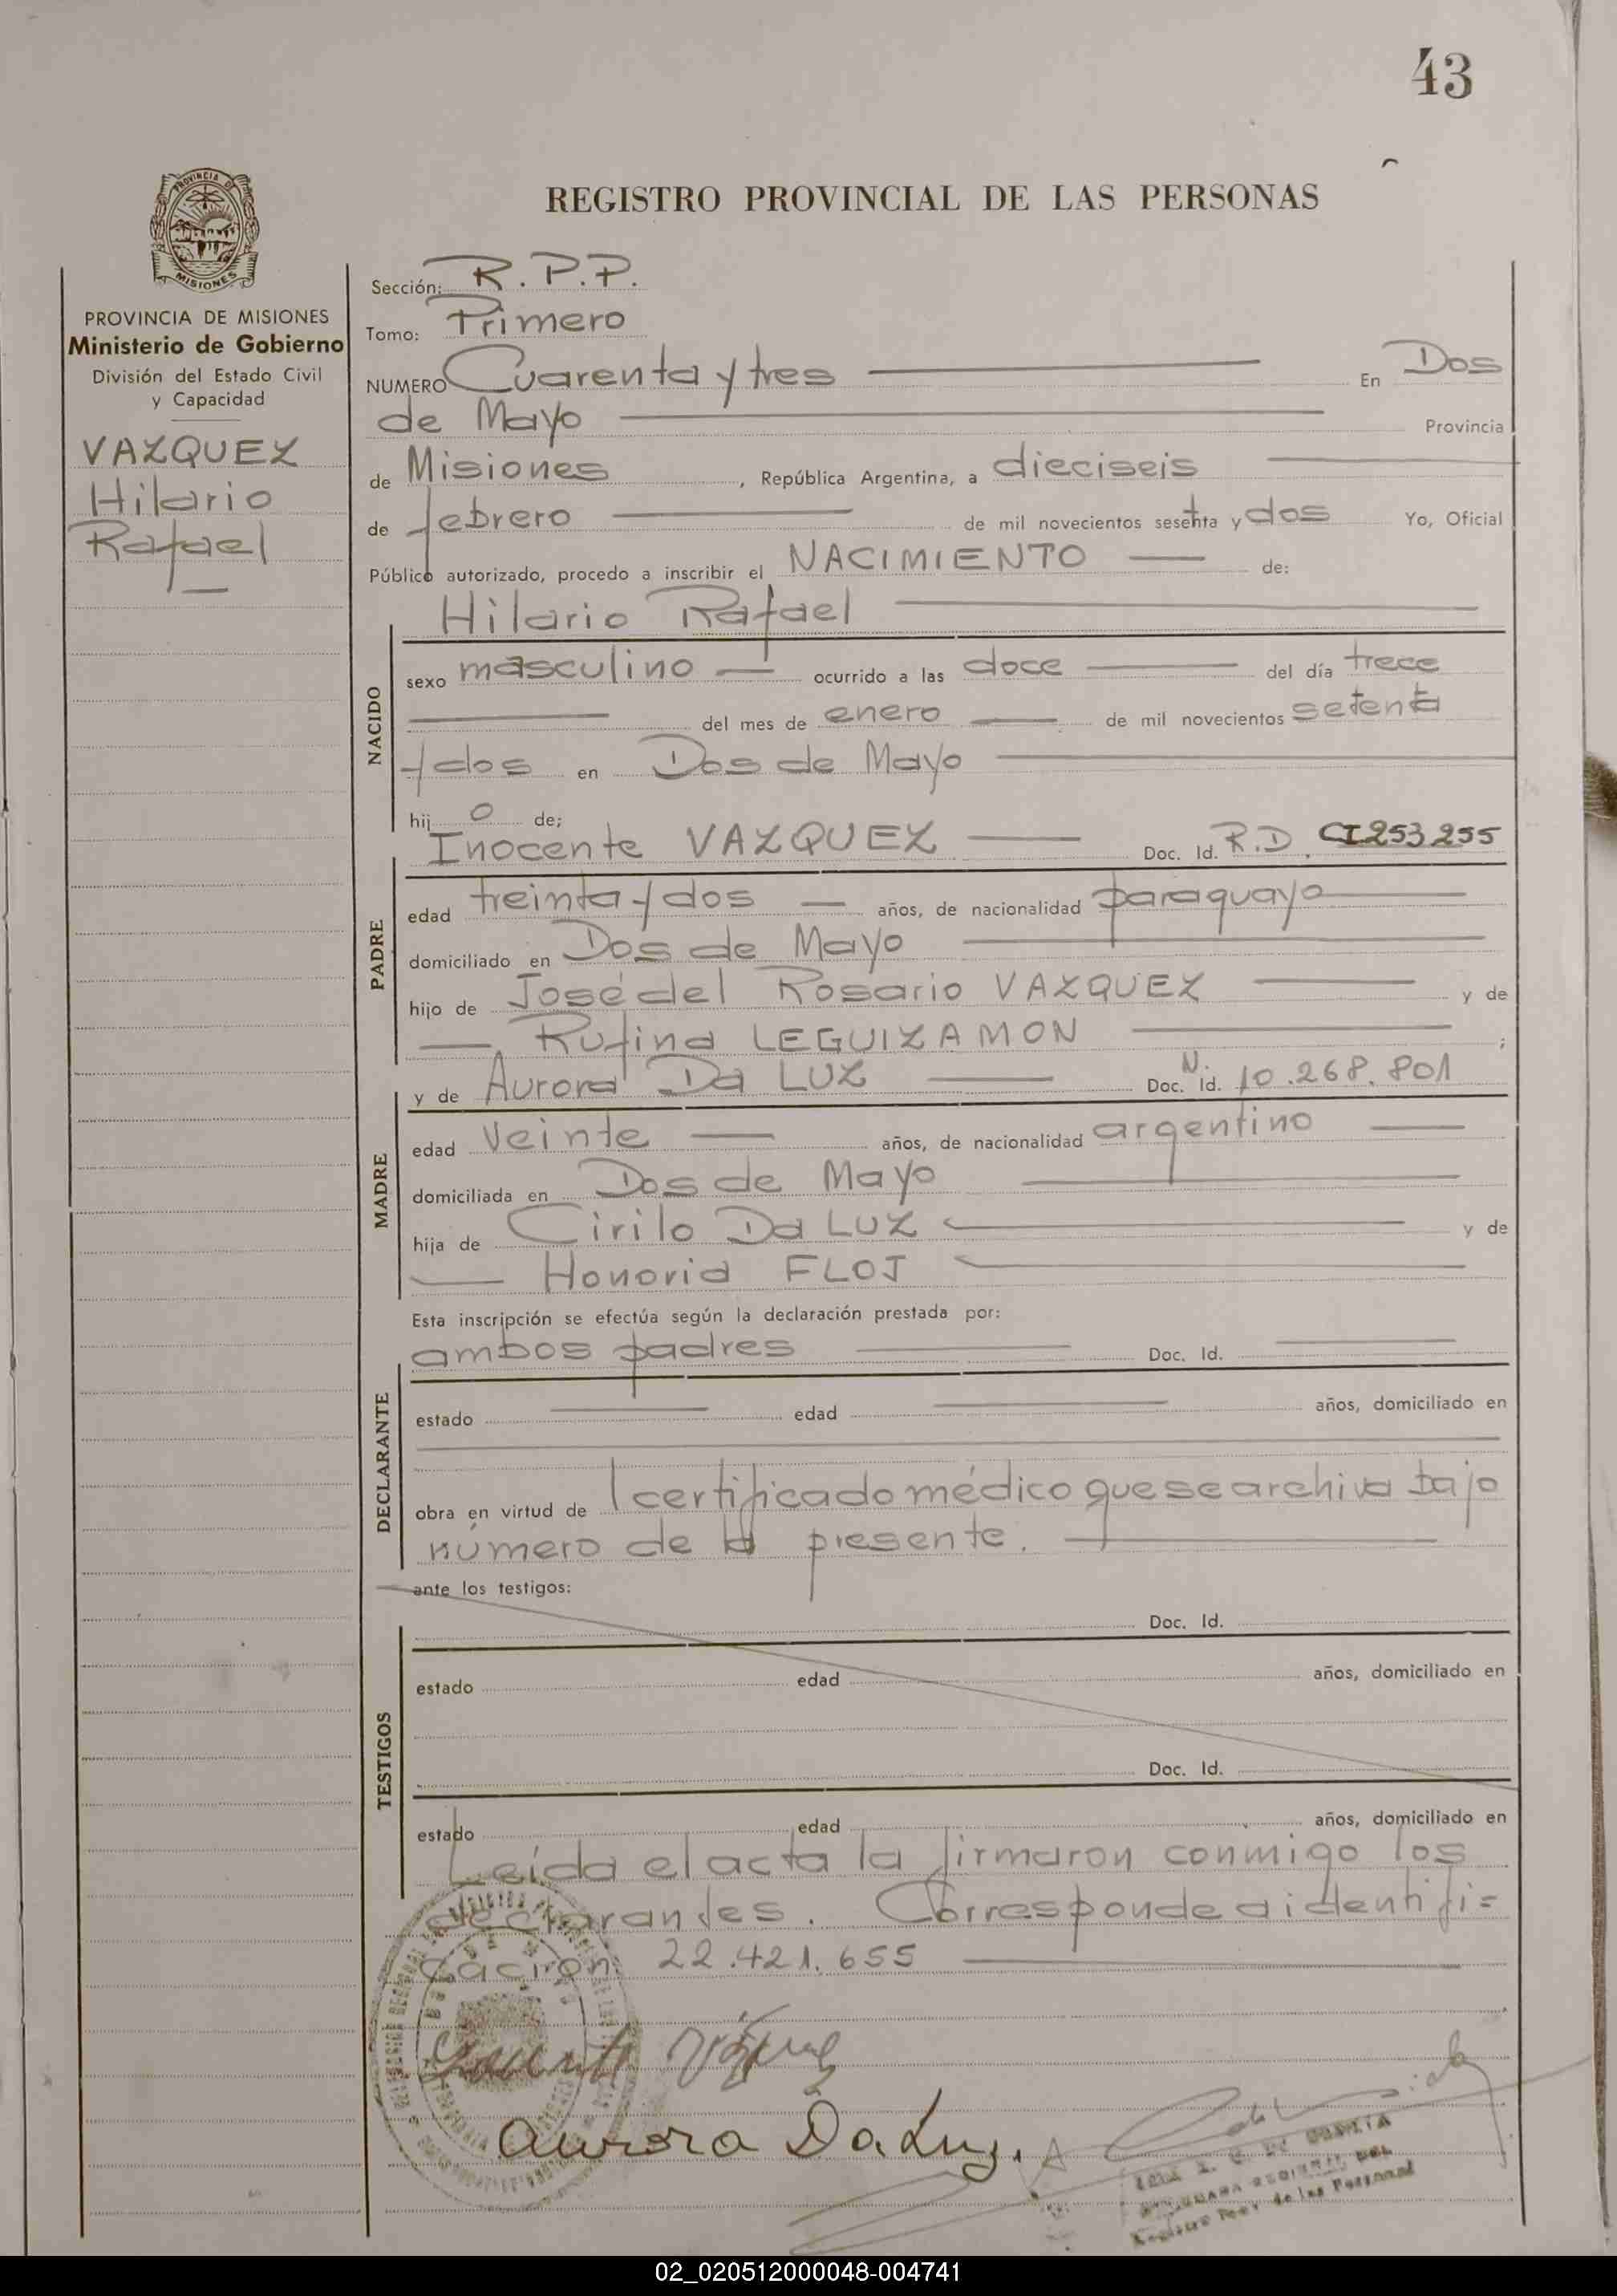 43
REGISTRO PROVINCIAL DE LAS PERSONAS
PROVINCIA DE
MISIONES
PROVINCIA DE MISIONES
Ministerio de Gobierno
División del Estado Civil
y Capacidad
VAZQUEZ
Hilario
Rafael
Sección: R.P.P.
Tomo: Primero
NUMERO Cuarenta y tres En Dos
de Mayo Provincia
de Misiones, República Argentina, a dieciseis
de febrero de mil novecientos sesenta y dos Yo, Oficial
Público autorizado, procedo a inscribir el NACIMIENTO de:
Hilario Rafael
NACIDO
sexo masculino ocurrido a las doce del día trece
del mes de enero de mil novecientos setenta
y dos en Dos de Mayo
hij o de;
Inocente VAZQUEZ Doc. Id. R.D. CI 253.255
PADRE
edad treinta y dos años, de nacionalidad paraguayo
domiciliado en Dos de Mayo
hijo de José del Rosario VAZQUEZ y de
Rufina LEGUIZAMON ;
y de Aurora Da LUZ Doc. Id. N. 10.268.801
MADRE
edad Veinte años, de nacionalidad argentino
domiciliada en Dos de Mayo
hija de Cirilo Da LUZ y de
Honoria FLOJ
Esta inscripción se efectúa según la declaración prestada por:
ambos padres Doc. Id.
DECLARANTE
estado edad años, domiciliado en
obra en virtud de l certificado médico que se archiva bajo
número de la presente.
ante los testigos:
Doc. Id.
TESTIGOS
estado edad años, domiciliado en
Doc. Id.
estado edad años, domiciliado en
Leída el acta la firmaron conmigo los
declarantes. Corresponde a identifi=
cación: 22.421.655
Aurora Da Luz.
02_020512000048-004741